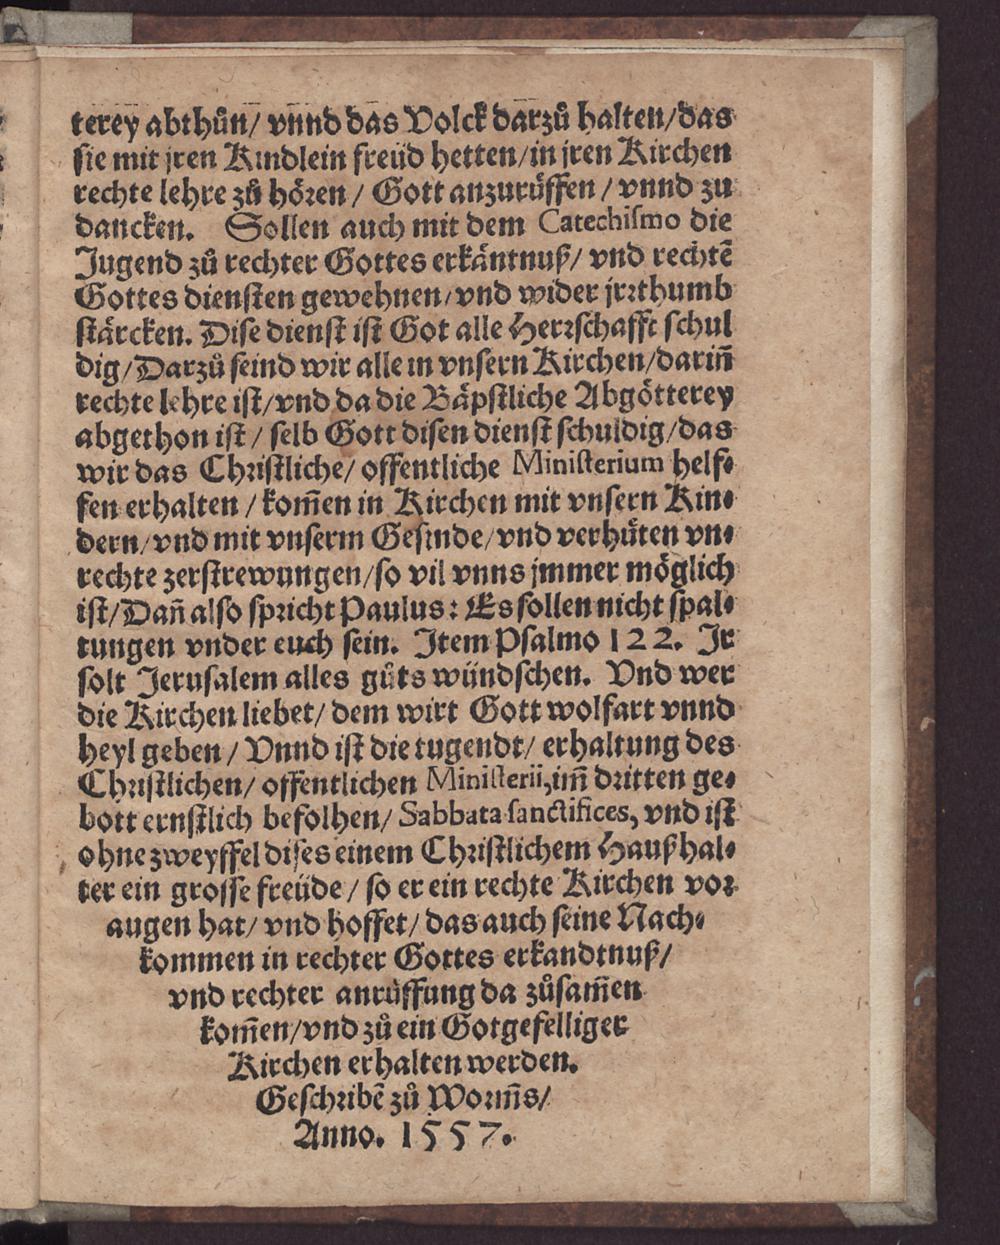 terey abthůn/ vnnd das Volck darzů halten/das
sie mit jren Kindlein freüd hetten/in jren Kirchen
rechte lehre zů hören / Gott anzurüffen / vnnd zu
dancken. Sollen auch mit dem Catechismo die
Jugend zů rechter Gottes erkäntnuß/ vnd rechtē
Gottes diensten gewehnen/vnd wider jrrthumb
stärcken. Dise dienst ist Got alle Herrschafft schul
dig/Darzů seind wir alle in vnsern Kirchen/dariñ
rechte lehre ist/vnd da die Bäpstliche Abgötterey
abgethon ist / selb Gott disen dienst schuldig/das
wir das Christliche/ offentliche Ministerium helf⸗
fen erhalten / kom̃en in Kirchen mit vnsern Kin⸗
dern/vnd mit vnserm Gesinde/vnd verhüten vn⸗
rechte zerstrewungen/so vil vnns jmmer möglich
ist/Dañ also spricht Paulus: Es sollen nicht spal⸗
tungen vnder euch sein. Item Psalmo 122. Jr
solt Jerusalem alles gůts wündschen. Vnd wer
die Kirchen liebet/ dem wirt Gott wolfart vnnd
heyl geben / Vnnd ist die tugendt/ erhaltung des
Christlichen/ offentlichen Ministerii, im̃ dritten ge⸗
bott ernstlich befolhen/ Sabbata sanctifices, vnd ist
ohne zweyffel dises einem Christlichem Haußhal⸗
ter ein grosse freüde / so er ein rechte Kirchen vor
augen hat/ vnd hoffet/ das auch seine Nach⸗
kommen in rechter Gottes erkandtnuß/
vnd rechter anrüffung da zůsam̃en
kom̃en/vnd zů ein Gotgefelliger
Kirchen erhalten werden.
Geschribē zů Worm̃s/
Anno. 1557.